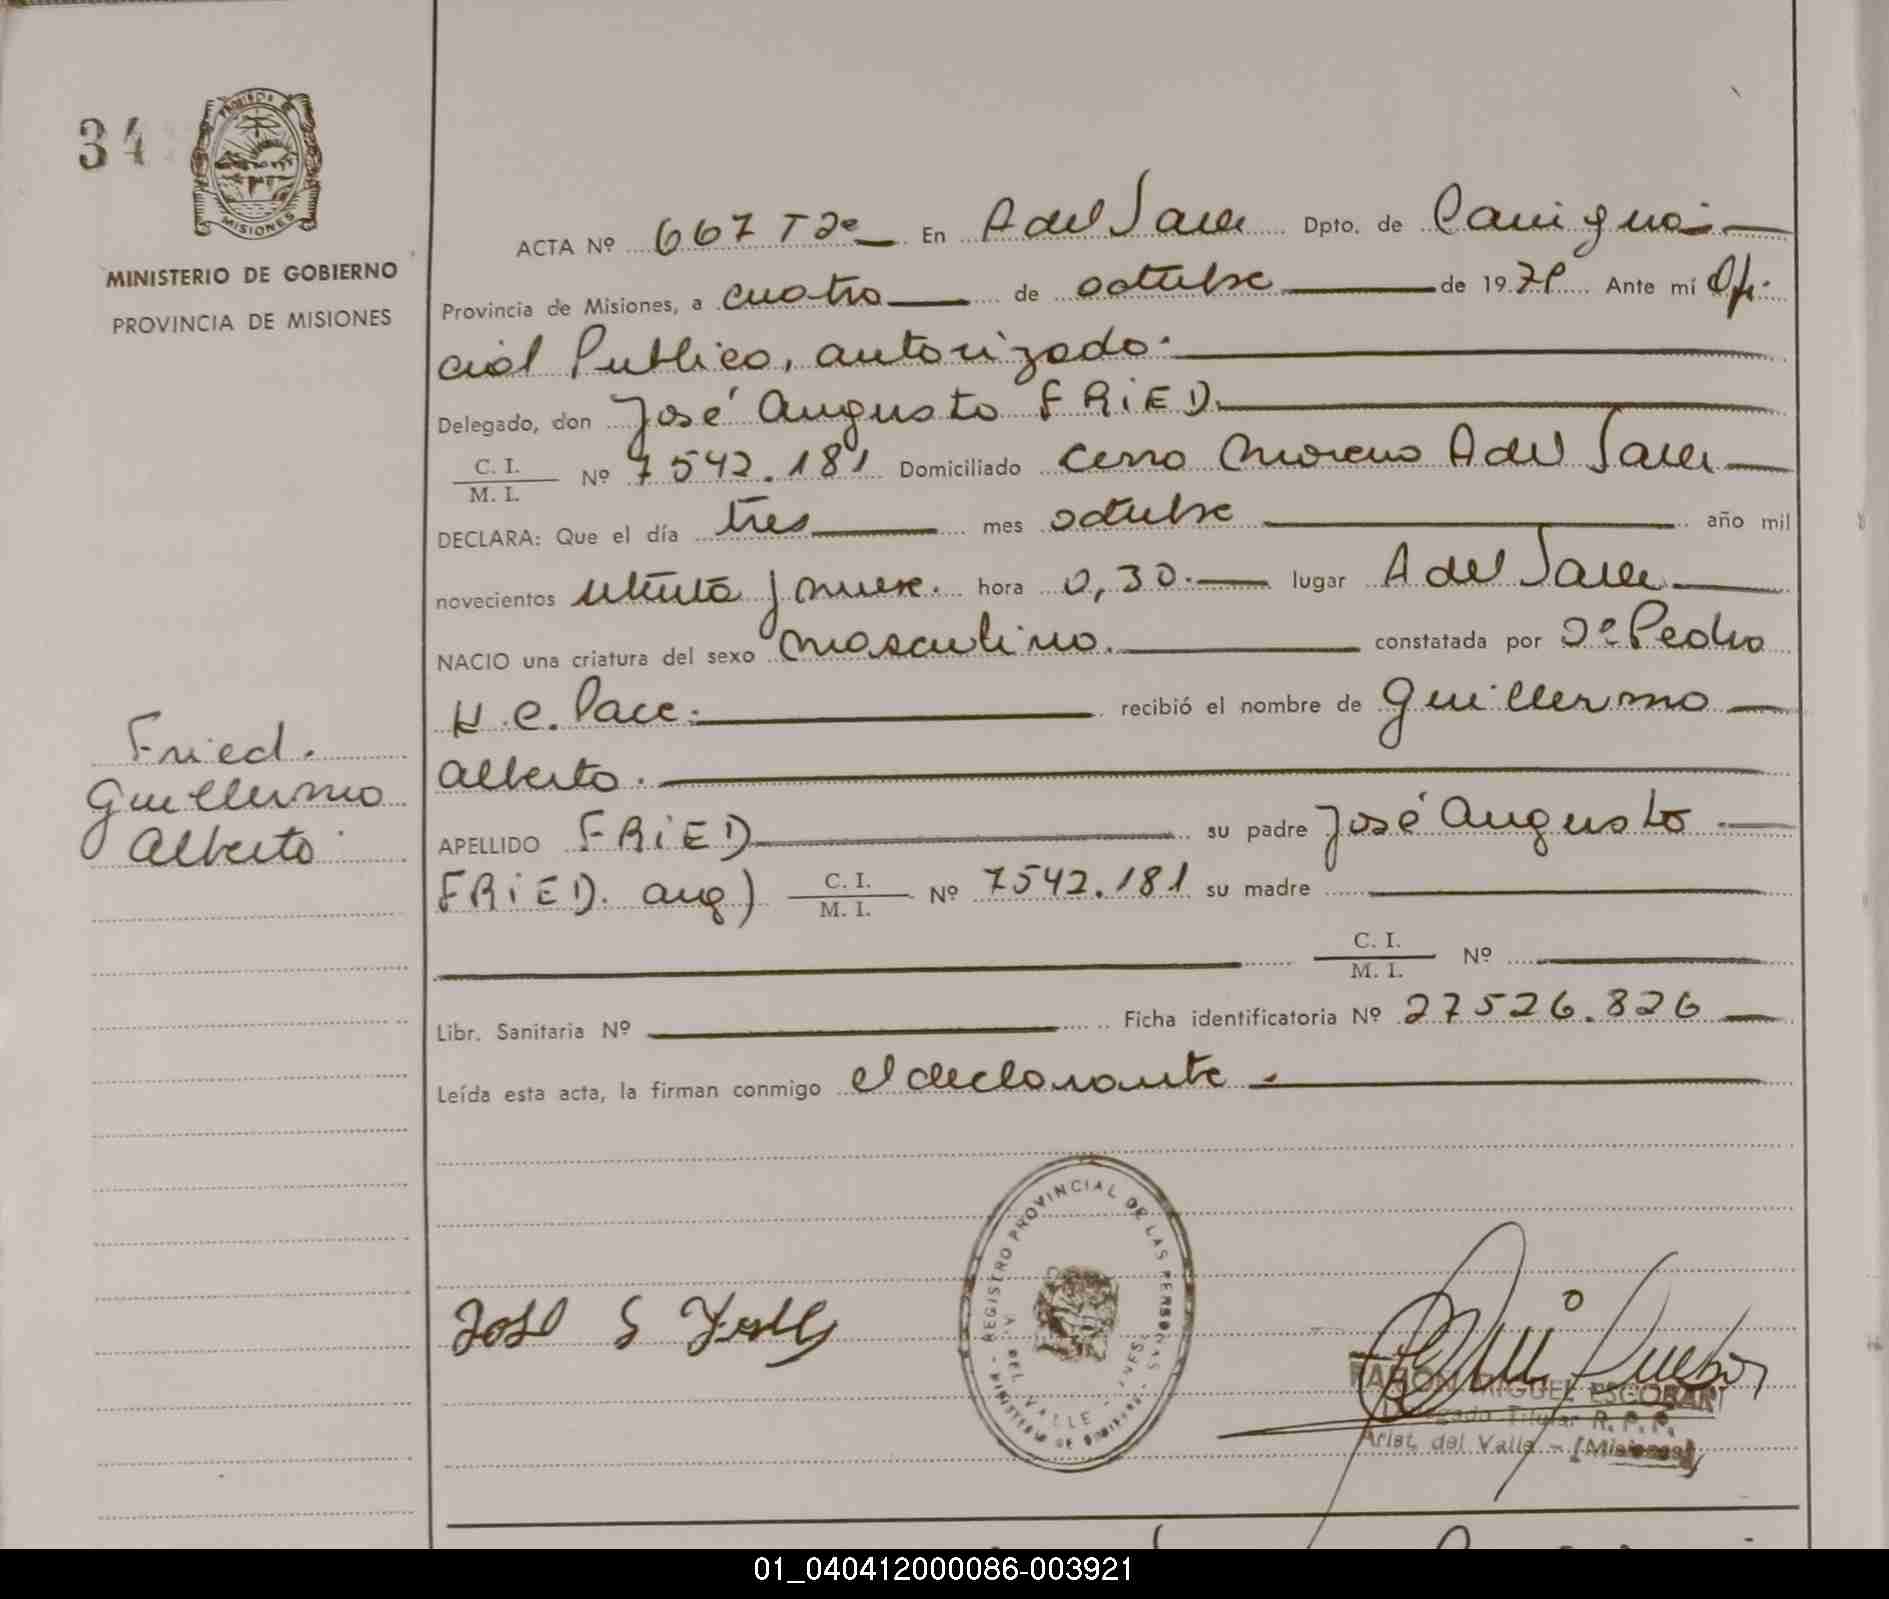 34
PROVINCIA DE
MISIONES
MINISTERIO DE GOBIERNO
PROVINCIA DE MISIONES
ACTA Nº 667 T 2º En A del Valle Dpto. de Cainguas
Provincia de Misiones, a cuatro de octubre de 1979 Ante mí Ofi-
cial Publico, autorizado.
Delegado, don José Augusto FRiED.
C. I. / M. I. Nº 7542.181 Domiciliado cerro Moreno A del Valle
DECLARA: Que el día tres mes octubre año mil
novecientos setenta y nueve. hora 0,30. lugar A del Valle
NACIO una criatura del sexo masculino. constatada por Dº Pedro
H. C. Pace. recibió el nombre de Guillermo
Alberto.
APELLIDO FRiED su padre José Augusto
FRiED. arg) C. I. / M. I. Nº 7542.181 su madre
C. I. / M. I. Nº
Libr. Sanitaria Nº Ficha identificatoria Nº 27526.826
Leída esta acta, la firman conmigo el declarante.
Fried.
Guillermo
Alberto
REGISTRO PROVINCIAL DE LAS PERSONAS
MINISTERIO DE GOBIERNO
A. DEL VALLE
RAMON MIGUEL ESCOBAR
Delegado Titular R. P. P.
Arist. del Valle - (Misiones)
01_040412000086-003921